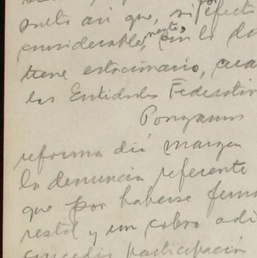 sulta así que, si efect
considerablemente, con lo do
tiene estacionario, cua
las Entidades Federativ
Pongamos
reforma dió margen
la denuncia referente
que por haberse
y un cobro adi
participación